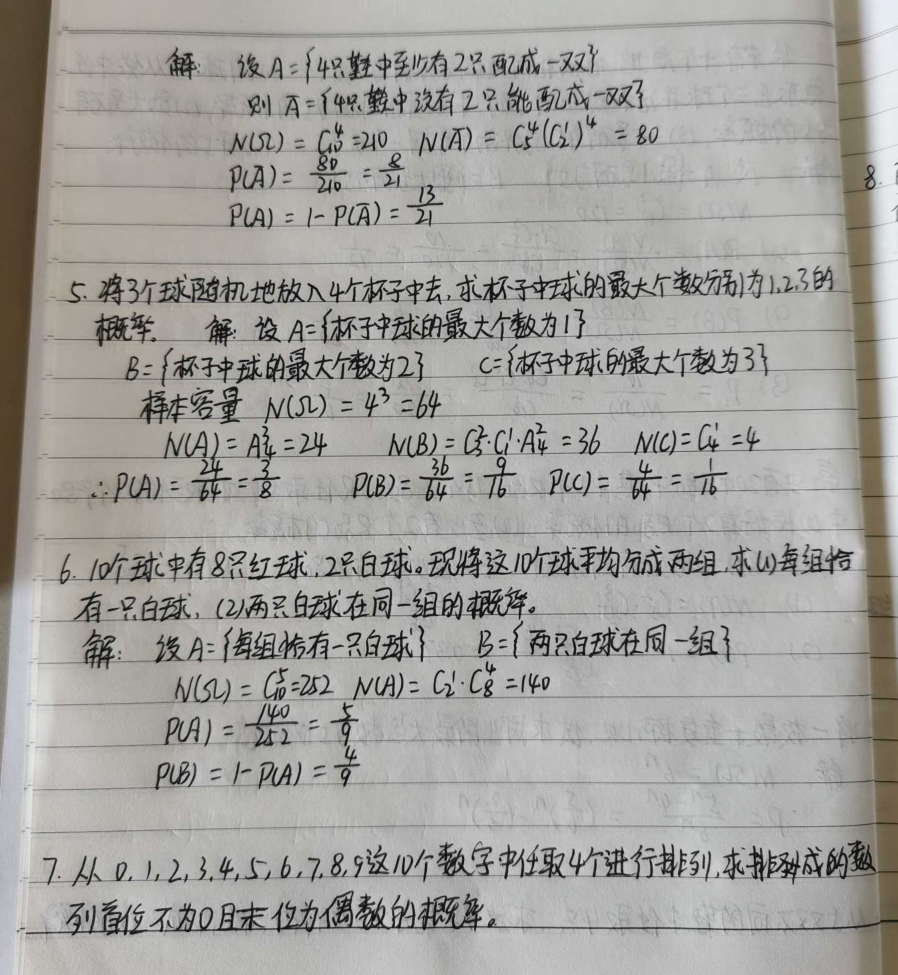 解: 设A={4只鞋中至少有2只配成一双}
则 A̅={4只鞋中没有2只能配成一双}
N(Ω)=C₁₀⁴=210 N(A̅)=C₅⁴(C₂¹)⁴=80
P(A̅)=80/210=8/21
P(A)=1-P(A̅)=13/21
8.
5. 将3个球随机地放入4个杯子中去,求杯子中球的最大个数分别为1,2,3的
概率. 解: 设A={杯子中球的最大个数为1}
B={杯子中球的最大个数为2} C={杯子中球的最大个数为3}
样本容量 N(Ω)=4³=64
N(A)=A₄³=24 N(B)=C₃²·C₁¹·A₄²=36 N(C)=C₄¹=4
∴P(A)=24/64=3/8 P(B)=36/64=9/16 P(C)=4/64=1/16
6. 10个球中有8只红球,2只白球。现将这10个球平均分成两组,求(1)每组恰
有一只白球,(2)两只白球在同一组的概率。
解: 设A={每组恰有一只白球} B={两只白球在同一组}
N(Ω)=C₁₀⁵=252 N(A)=C₂¹·C₈⁴=140
P(A)=140/252=5/9
P(B)=1-P(A)=4/9
7. 从0,1,2,3,4,5,6,7,8,9这10个数字中任取4个进行排列,求排列成的数
列首位不为0且末位为偶数的概率。